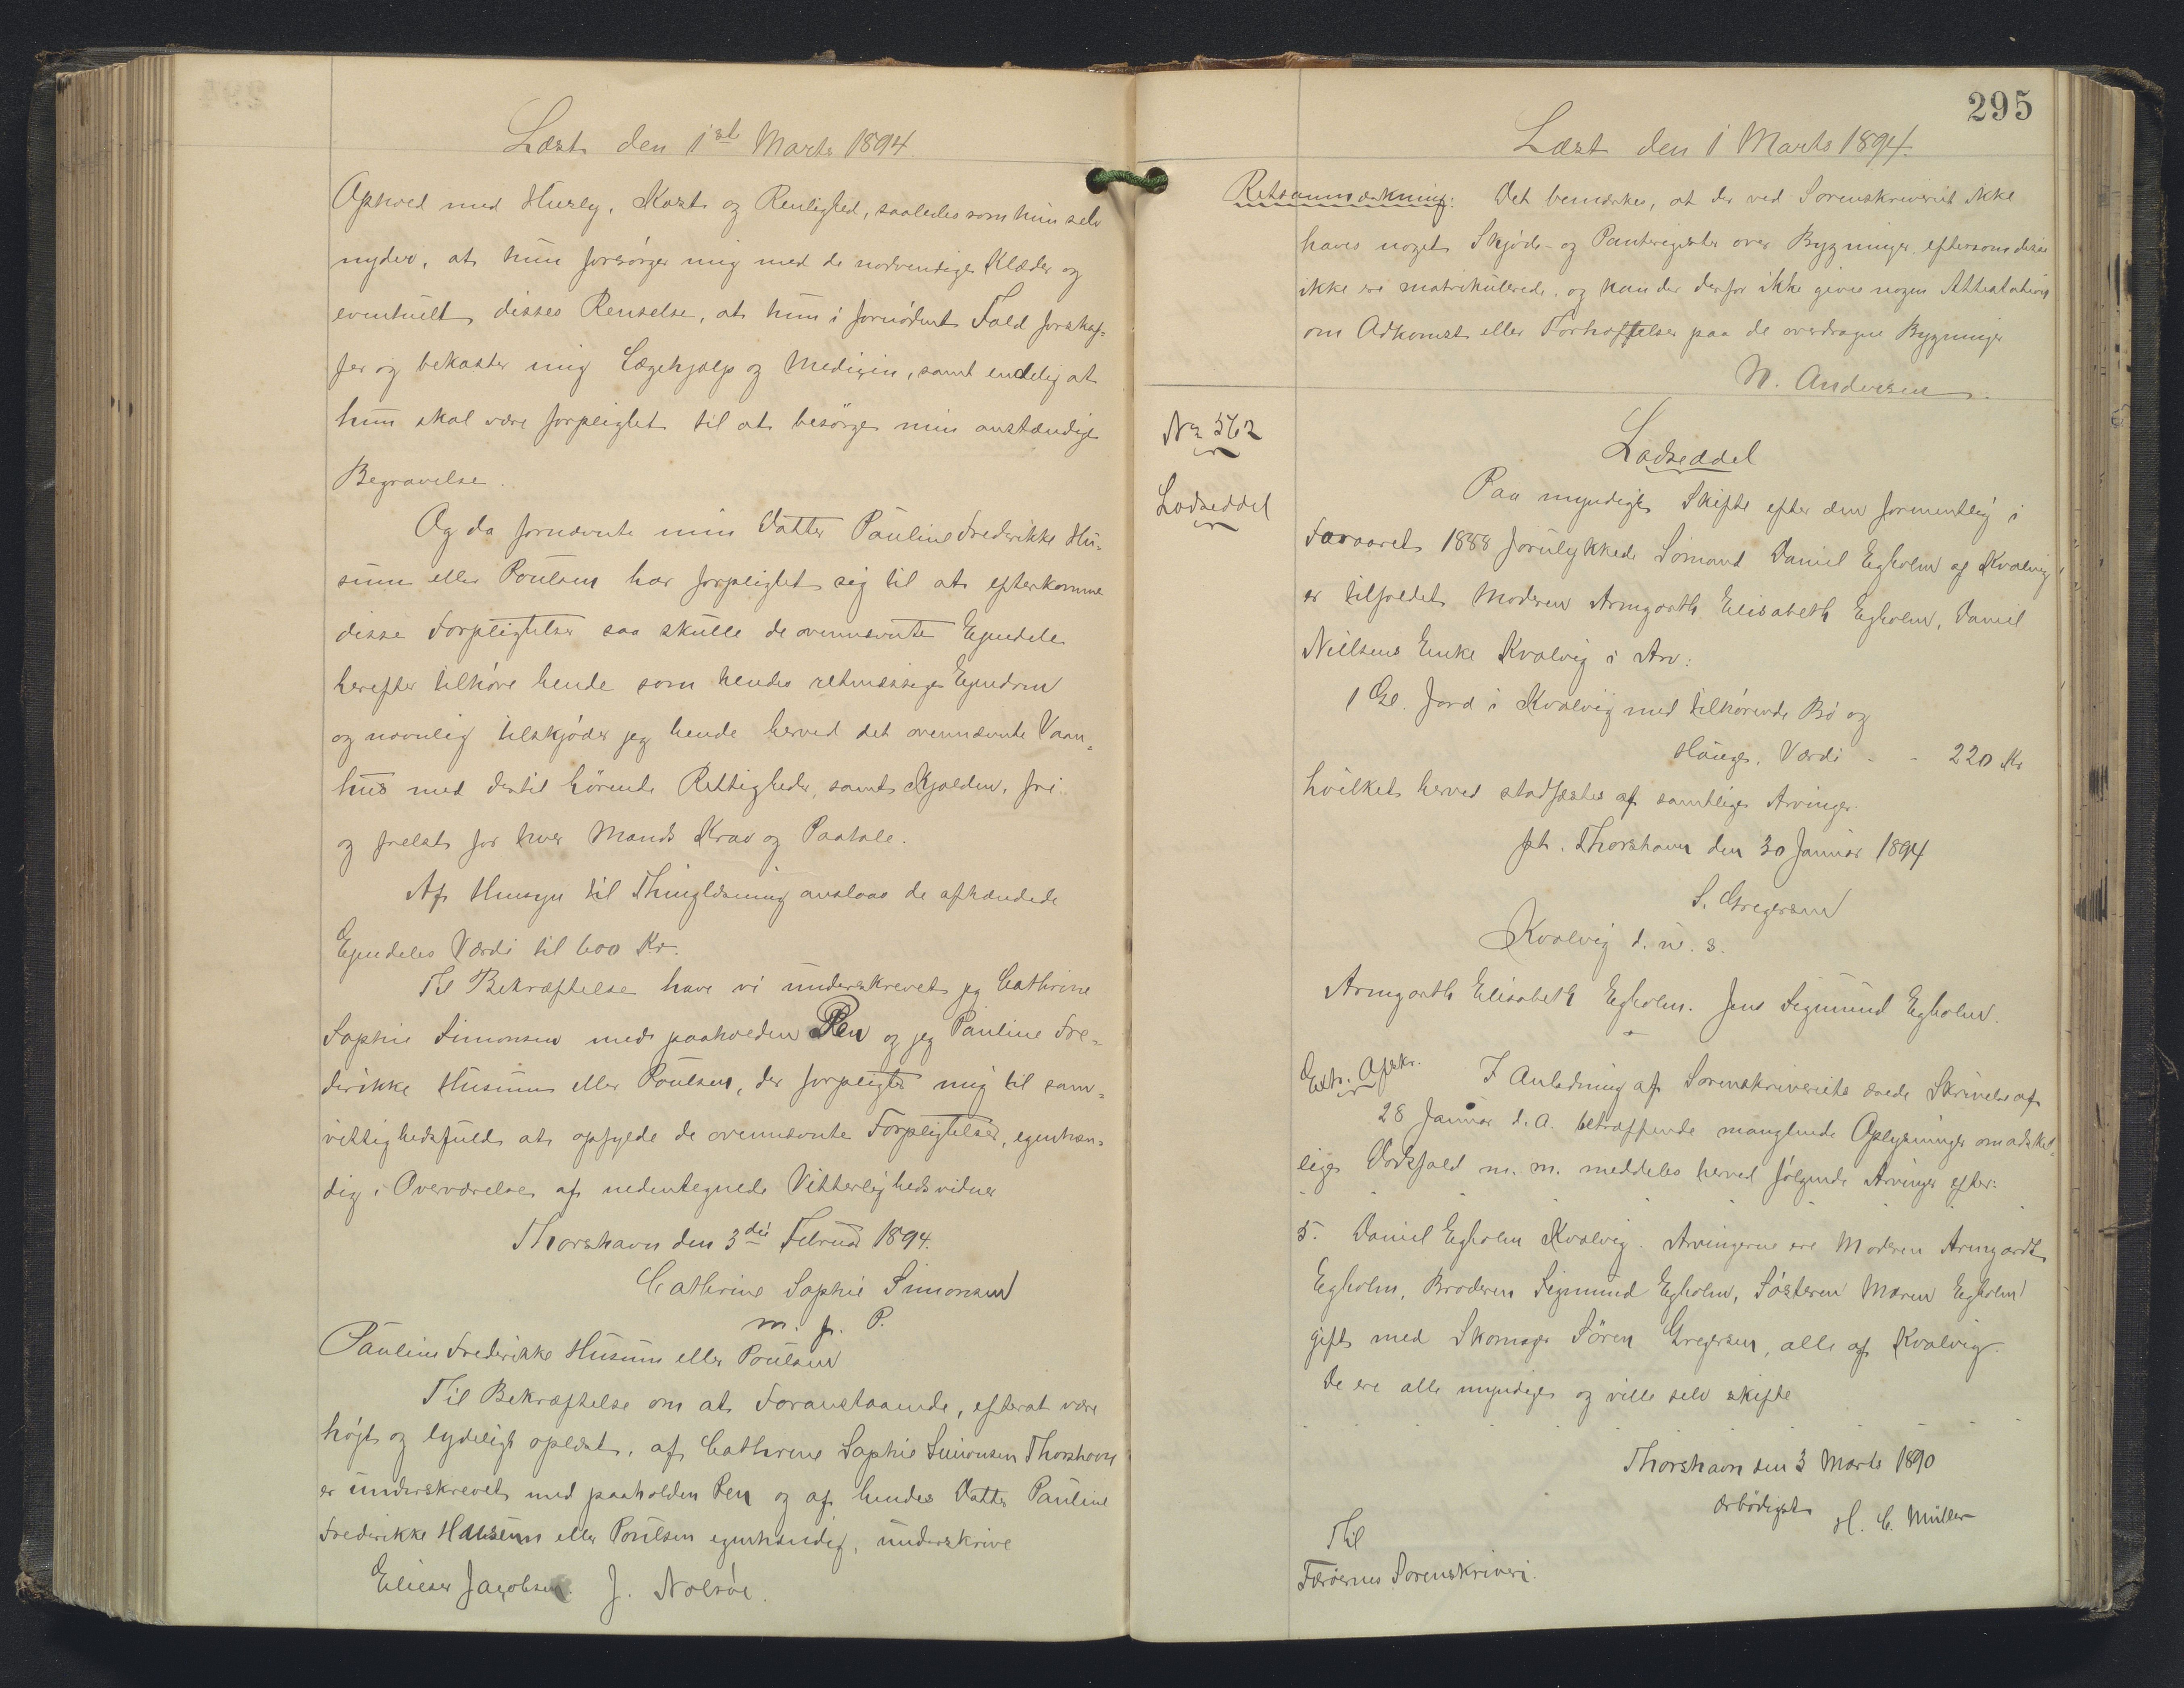 Læst den 1ste Marts 1894.
Ophold med Huusly, Kost og Renlighed, saaledes som hun selv
nyder, at hun forsörger mig med de nödvendige Klæder og
eventuelt disses Renselse, at hun i fornödent Fald forskaf-
fer og bekoster mig Lægehjælp og Medicin, samt endelig at
hun skal være forpligtet til at besörge min anstændige
Begravelse.
Og da fornævnte min Datter Pauline Frederikke Hu-
sum eller Poulsen har forpligtet sig til at efterkomme
disse Forpligtelser saa skulle de ovennævnte Ejendele
herefter tilhöre hende som hendes retmæssige Ejendom
og navnlig tilskjöder jeg hende herved det ovennævnte Vaan-
hus med dertil hörende Rettigheder, samt Kjælder, fri
og frelst for hver Mands Krav og Paatale.
Af Hensyn til Thinglæsning anslaas de afhændede
Ejendeles Værdi til 600 Kr.
Til Bekræftelse have vi underskrevet jeg Cathrine
Sophie Simonsen med paaholden Pen og jeg Pauline Fre-
derikke Husum eller Poulsen, der forpligter mig til sam-
vittighedsfuldt at opfylde de ovennævnte Forpligtelser, egenhæn-
dig i Overværelse af nedentegnede Vitterlighedsvidner
Thorshavn den 3die Februar 1894.
Cathrine Sophie Simonsen
m. p. P.
Pauline Frederikke Husum eller Poulsen
Til Bekræftelse om at Foranstaaende, efterat være
höjt og lydeligt oplæst, af Cathrine Sophie Simonsen Thorshavn
er underskrevet med paaholden Pen og af hendes Datter Pauline
Frederikke Husum eller Poulsen egenhændig, underskrive
Elieser Jacobsen. J. Nolsöe.
295
Læst den 1 Marts 1894.
Retsanmærkning: Det bemærkes, at der ved Sorenskriveriet ikke
haves noget Skjöde- og Panteregister over Bygninger eftersom disse
ikke ere matrikulerede, og kan der derfor ikke gives nogen Attestation
om Adkomst eller Forhæftelser paa de overdragne Bygninger
N. Andersen.
No 562
Lodseddel
Lodseddel
Paa myndigt Skifte efter den formentlig i
Foraaret 1888 forulykkede Sömand Daniel Egholm af Kvalvig
er tilfaldet Moderen Armgarth Elisabeth Egholm, Daniel
Nielsens Enke Kvalvig i Arv:
1 Gl. Jord i Kvalvig med tilhörende Bö og
Hauge, Værdi - - 220 Kr
hvilket herved stadfæstes af samtlige Arvinger.
pt. Thorshavn den 30 Januar 1894
S. Gregersen
Kvalvig d. u. s.
Armgarth Elisabeth Egholm. Jens Sigmund Egholm.
Extr. Afskr. I Anledning af Sorenskriveriets ærede Skrivelse af
28 Januar d. A. betræffende manglende Oplysninger om adskil-
lige Dödsfald m. m. meddeles herved fölgende Arvinger efter:
5. Daniel Egholm Kvalvig. Arvingerne ere Moderen Armgardt
Egholm, Broderen Sigmund Egholm, Sösteren Maren Egholm
gift med Skomager Sören Gregersen, alle af Kvalvig.
De ere alle myndige og ville selv skifte
Thorshavn den 3 Marts 1890
ærbödigst H. C. Müller
Til
Færöernes Sorenskriveri.